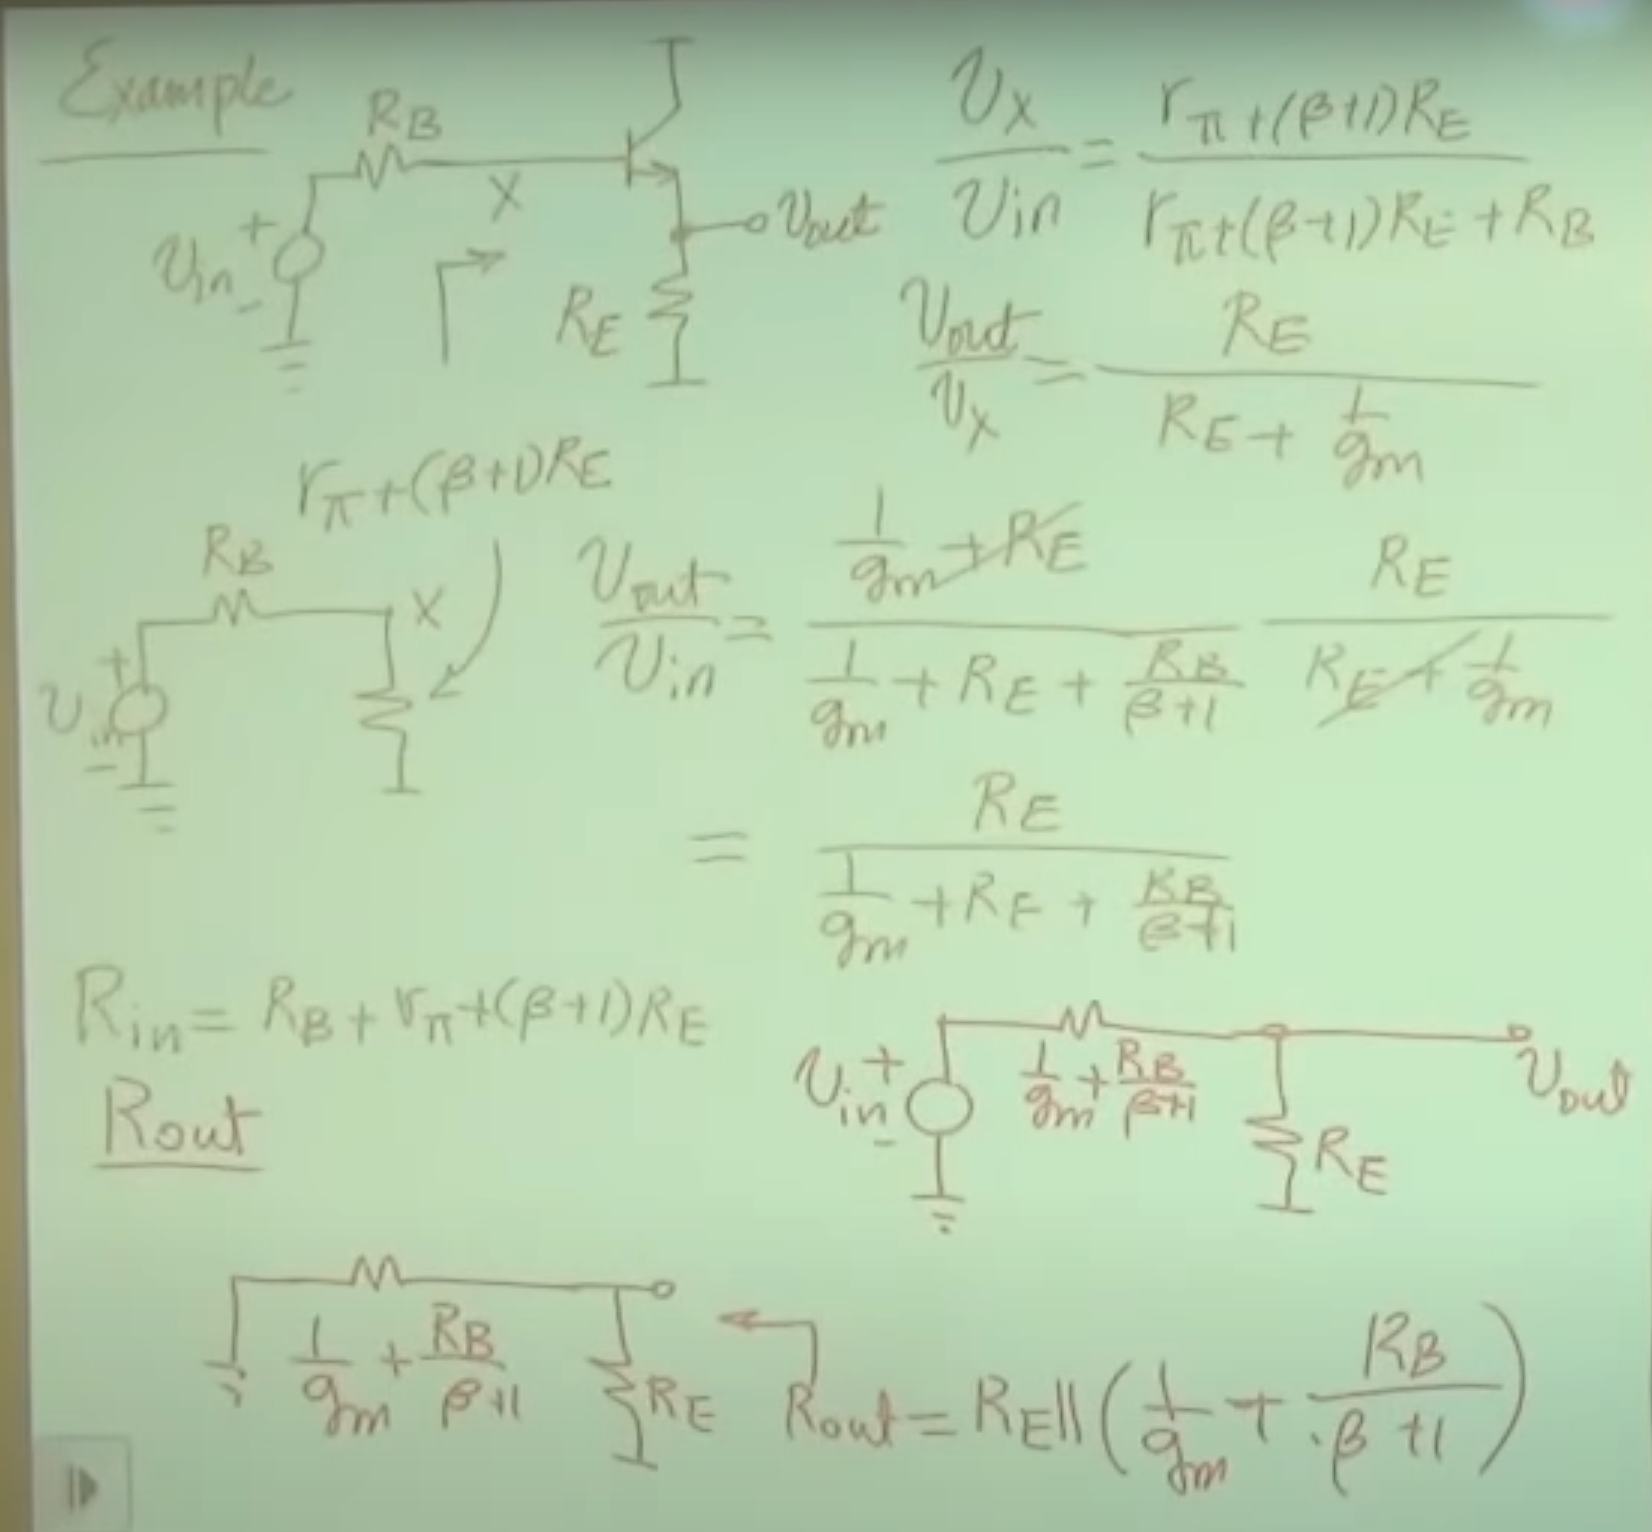 Example
R_B
X
v_in + -
v_out
R_E
v_X / v_in = (r_π + (β+1)R_E) / (r_π + (β+1)R_E + R_B)
v_out / v_X = R_E / (R_E + 1/g_m)
r_π + (β+1)R_E
R_B
X
v_in + -
v_out / v_in = (1/g_m + R_E) / (1/g_m + R_E + R_B/(β+1)) R_E / (R_E + 1/g_m)
= R_E / (1/g_m + R_E + R_B/(β+1))
R_in = R_B + r_π + (β+1)R_E
v_in + -
1/g_m + R_B/(β+1)
R_E
v_out
Rout
1/g_m + R_B/(β+1)
R_E
Rout = R_E || (1/g_m + R_B/(β+1))